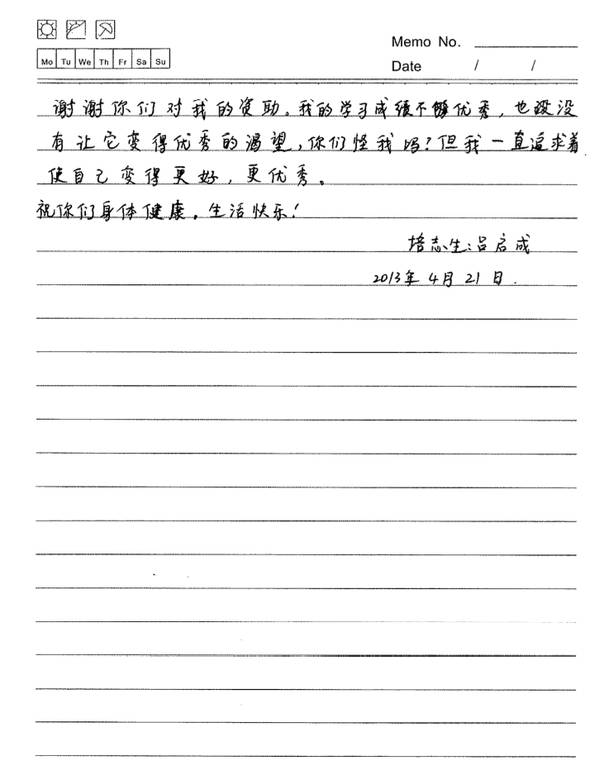 Memo No.
Mo Tu We Th Fr Sa Su
Date / /
谢谢你们对我的资助。我的学习成绩不够优秀，也没
有让它变得优秀的渴望，你们怪我吗？但我一直追求着
使自己变得更好，更优秀。
祝你们身体健康，生活快乐！
培志生：吕启成
2013年4月21日.